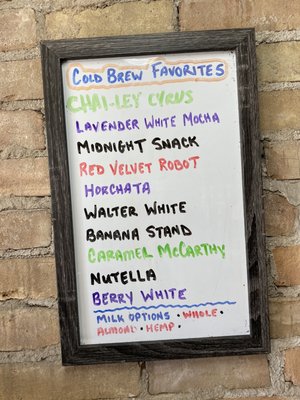 COLD BREW FAVORITES
CHAI-LEY CYRUS
LAVENDER WHITE MOCHA
MIDNIGHT SNACK
RED VELVET ROBOT
HORCHATA
WALTER WHITE
BANANA STAND
CARAMEL MCCARTHY
NUTELLA
BERRY WHITE
MILK OPTIONS • WHOLE •
ALMOND • HEMP •